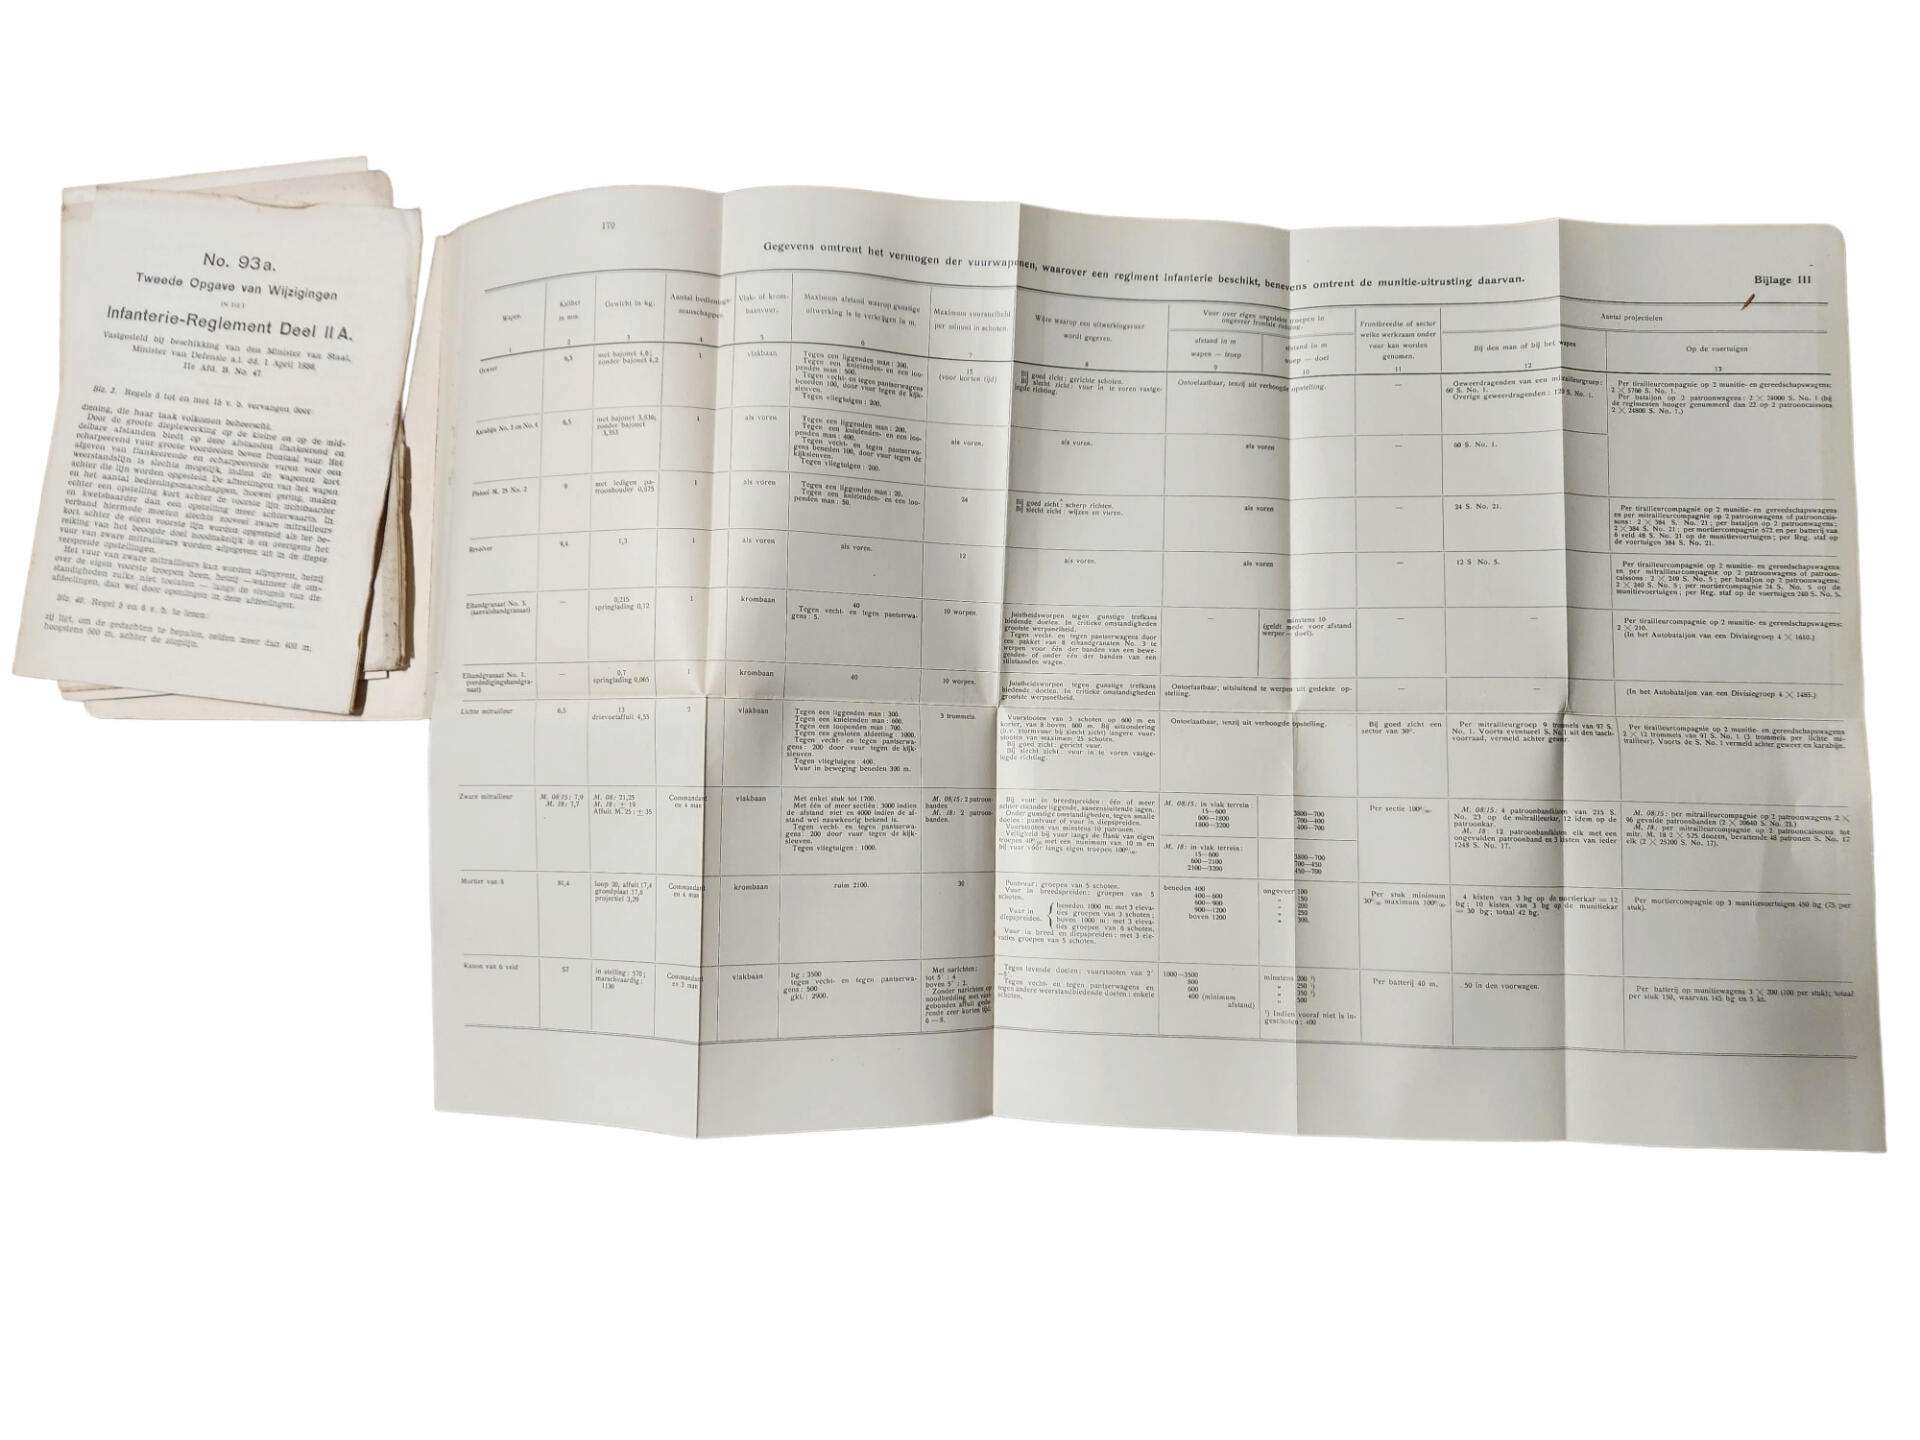 No. 93a.
Tweede Opgave van Wijzigingen
IN HET
Infanterie-Reglement Deel II A.
Vastgesteld bij beschikking van den Minister van Staat,
Minister van Defensie a.i. dd. 1 April 1938,
IIe Afd. B. No. 47.
Blz. 2. Regels 5 tot en met 15 v. b. vervangen door:
diening, die haar taak volkomen beheerscht.
Door de groote dieptewerking op de kleine en op de mid-
delbare afstanden biedt op deze afstanden flankeerend en
echarpeerend vuur groote voordeelen boven frontaal vuur. Het
afgeven van flankeerende en echarpeerende vuren voor een
weerstandslijn is slechts mogelijk, indien de wapenen kort
achter die lijn worden opgesteld. De afmetingen van het wapen
en het aantal bedieningsmanschappen, hoewel gering, maken
echter een opstelling kort achter de voorste lijn zichtbaarder
en kwetsbaarder dan een opstelling meer achterwaarts. In
verband hiermede moeten slechts zooveel zware mitrailleurs
kort achter de eigen voorste lijn worden opgesteld als ter be-
reiking van het beoogde doel noodzakelijk is en overigens het
vuur van zware mitrailleurs worden afgegeven uit in de diepte
verspreide opstellingen.
Het vuur van zware mitrailleurs kan worden afgegeven, hetzij
over de eigen voorste troepen heen, hetzij — wanneer de om-
standigheden zulks niet toelaten — langs de vleugels van die
afdeelingen, dan wel door openingen in deze afdeelingen.
Blz. 40. Regel 5 en 6 v. b. te lezen:
zij ligt, om de gedachten te bepalen, zelden meer dan 400 m,
hoogstens 500 m, achter de stoplijn.
170
Gegevens omtrent het vermogen der vuurwapenen, waarover een regiment infanterie beschikt, benevens omtrent de munitie-uitrusting daarvan.
Bijlage III
Wapen.
Kaliber
in mm
Gewicht in kg.
Aantal bedienings-
manschappen
Vlak- of krom-
baanvuur.
Maximum afstand waarop gunstige
uitwerking is te verkrijgen in m.
Maximum vuursnelheid
per minuut in schoten.
Wijze waarop een uitwerkingsvuur
wordt gegeven.
Vuur over eigen ongedekte troepen in
ongeveer frontale richting.
afstand in m
wapen — troep
afstand in m
troep — doel
Frontbreedte of sector
welke werkzaam onder
vuur kan worden
genomen.
Aantal projectielen
Bij den man of bij het wapen
Op de voertuigen
1 2 3 4 5 6 7 8 9 10 11 12 13
Geweer
6,5
met bajonet 4,6;
zonder bajonet 4,2
1
vlakbaan
Tegen een liggenden man: 300.
Tegen een knielenden- en een loo-
penden man: 500.
Tegen vecht- en tegen pantserwagens
beneden 100, door vuur tegen de kijk-
sleuven.
Tegen vliegtuigen: 200.
15
(voor korten tijd)
Bij goed zicht: gerichte schoten.
Bij slecht zicht: vuur in te voren vastge-
legde richting.
Ontoelaatbaar, tenzij uit verhoogde opstelling.
—
Geweerdragenden van een mitrailleurgroep:
60 S. No. 1.
Overige geweerdragenden: 120 S. No. 1.
Per tirailleurcompagnie op 2 munitie- en gereedschapswagens:
2 × 5760 S. No. 1.
Per bataljon op 2 patroonwagens: 2 × 24000 S. No. 1 (bij
de regimenten hooger genummerd dan 22 op 2 patrooncaissons
2 × 24800 S. No. 1.)
Karabijn No. 3 en No. 4
6,5
zonder bajonet
1
als voren
Tegen een liggenden man: 200.
Tegen een knielenden- en een loo-
penden man: 400.
Tegen vecht- en tegen pantserwa-
gens beneden 100, door vuur tegen de
kijksleuven.
Tegen vliegtuigen: 200.
als voren.
als voren.
als voren
—
60 S. No. 1.
Pistool M. 25 No. 2
9
met ledigen pa-
troonhouder 0,975
1
als voren
Tegen een liggenden man: 20.
Tegen een knielenden- en een loo-
penden man: 50.
24
Bij goed zicht: scherp richten.
Bij slecht zicht: wijzen en vuren.
als voren
—
24 S. No. 21.
Per tirailleurcompagnie op 2 munitie- en gereedschapswagens
en per mitrailleurcompagnie op 2 patroonwagens of patrooncais-
sons: 2 × 384 S. No. 21; per bataljon op 2 patroonwagens:
2 × 384 S. No. 21; per mortiercompagnie 672 en per batterij van
6 veld 48 S. No. 21 op de munitievoertuigen; per Reg. staf op
de voertuigen 384 S. No. 21.
Revolver
9,4
1,3
1
als voren
als voren.
12
als voren.
als voren
—
12 S No. 5.
Per tirailleurcompagnie op 2 munitie- en gereedschapswagens
en per mitrailleurcompagnie op 2 patroonwagens of patroon-
caissons: 2 × 240 S. No. 5; per bataljon op 2 patroonwagens:
2 × 240 S. No. 5; per mortiercompagnie 24 S. No. 5 op de
munitievoertuigen; per Reg. staf op de voertuigen 240 S. No. 5.
Eihandgranaat No. 3.
(aanvalshandgranaat)
—
0,215
springlading 0,12
1
krombaan
40
Tegen vecht- en tegen pantserwa-
gens 5.
10 worpen.
Juistheidsworpen tegen gunstige trefkans
biedende doelen. In critieke omstandigheden
grootste werpsnelheid.
Tegen vecht- en tegen pantserwagens door
een pakket van 8 eihandgranaten No. 3 te
werpen voor één der banden van een bewe-
genden- of onder één der banden van een
stilstaanden wagen.
—
minstens 10
(geldt mede voor afstand
werper — doel).
—
—
Per tirailleurcompagnie op 2 munitie- en gereedschapswagens:
2 × 210.
(In het Autobataljon van een Divisiegroep 4 × 1610.)
Eihandgranaat No. 1.
(verdedigingshandgra-
naat)
—
0,7
springlading 0,065
1
krombaan
40
10 worpen.
Juistheidsworpen tegen gunstige trefkans
biedende doelen. In critieke omstandigheden
grootste werpsnelheid.
Ontoelaatbaar, uitsluitend te werpen uit gedekte op-
stelling.
—
—
(In het Autobataljon van een Divisiegroep 4 × 1485.)
Lichte mitrailleur
6,5
13
drievoetaffuit 4,55
2
vlakbaan
Tegen een liggenden man: 300.
Tegen een knielenden man: 600.
Tegen een loopenden man: 700.
Tegen een gesloten afdeeling: 1000.
Tegen vecht- en tegen pantserwa-
gens: 200 door vuur tegen de kijk-
sleuven
Tegen vliegtuigen: 400.
Vuur in beweging beneden 300 m.
3 trommels.
Vuurstooten van 5 schoten op 600 m en
korter, van 8 boven 600 m. Bij uitzondering
(b.v. stormvuur bij slecht zicht) langere vuur-
stooten van maximum 25 schoten.
Bij goed zicht: gericht vuur.
Bij slecht zicht: vuur in te voren vastge-
legde richting.
Ontoelaatbaar, tenzij uit verhoogde opstelling.
Bij goed zicht een
sector van 30°.
Per mitrailleurgroep 9 trommels van 97 S.
No. 1. Voorts eventueel S. No. 1 uit den tasch-
voorraad, vermeld achter geweer.
Per tirailleurcompagnie op 2 munitie- en gereedschapswagens
2 × 12 trommels van 97 S. No. 1 (3 trommels per lichte mi-
trailleur). Voorts de S. No. 1 vermeld achter geweer en karabijn.
Zware mitrailleur
M. 08/15: 7,9
M. 18: 7,7
M. 08: 21,25
M. 18: ± 19
Affuit M. 25: ± 35
Commandant
en 4 man
vlakbaan
Met enkel stuk tot 1700.
Met één of meer sectiën: 3000 indien
de afstand niet en 4000 indien de af-
stand wel nauwkeurig bekend is.
Tegen vecht- en tegen pantserwa-
gens: 200 door vuur tegen de kijk-
sleuven.
Tegen vliegtuigen: 1000.
M. 08/15: 2 patroon-
banden
M. 18: 2 patroon-
banden.
Bij vuur in breedspreiden: één of meer
achter elkander liggende, aaneensluitende lagen.
Onder gunstige omstandigheden, tegen smalle
doelen: puntvuur of vuur in diepspreiden.
Vuurstooten van minstens 10 patronen.
Veiligheid bij vuur langs de flank van eigen
troepen 40‰ met een minimum van 10 m en
bij vuur vóór langs eigen troepen 100‰.
M. 08/15: in vlak terrein:
15—600
600—1800
1800—3200
3800—700
700—400
400—700
M. 18: in vlak terrein:
15—600
600—2100
2100—3200
3800—700
700—450
450—700
Per sectie 100‰.
M. 08/15: 4 patroonbandkisten van 215 S.
No. 23 op de mitrailleurkar, 12 idem op de
patroonkar.
M. 18: 12 patroonbandkisten elk met een
ongevulden patroonband en 3 kisten van ieder
1248 S. No. 17.
M. 08/15: per mitrailleurcompagnie op 2 patroonwagens 2 ×
96 gevulde patroonbanden (2 × 20640 S. No. 23.)
M. 18: per mitrailleurcompagnie op 2 patrooncaissons tot
mitr. M. 18 2 × 525 doozen, bevattende 48 patronen S. No. 17
elk (2 × 25200 S. No. 17).
Mortier van 8
81,4
loop 20, affuit 17,4
grondplaat 37,8
projectiel 3,29
Commandant
en 4 man
krombaan
ruim 2100.
30
Puntvuur: groepen van 5 schoten.
Vuur in breedspreiden: groepen van 5
schoten.
Vuur in
diepspreiden.
beneden 1000 m: met 3 eleva-
ties groepen van 3 schoten;
boven 1000 m: met 3 eleva-
ties groepen van 6 schoten.
Vuur in breed en diepspreiden: met 3 ele-
vaties groepen van 5 schoten.
beneden 400
400—600
600—900
900—1200
boven 1200
ongeveer 100
" 150
" 200
" 250
" 300.
Per stuk minimum
30‰ maximum 100‰
4 kisten van 3 bg op de mortierkar = 12
bg; 10 kisten van 3 bg op de munitiekar
= 30 bg; totaal 42 bg.
Per mortiercompagnie op 3 munitievoertuigen 450 bg (75 per
stuk).
Kanon van 6 veld
57
in stelling: 570;
marschvaardig:
1130
Commandant
en 5 man
vlakbaan
bg: 3500
tegen vecht- en tegen pantserwa-
gens: 500
gkt.: 2900.
Met narichten:
tot 5': 4
boven 5': 2.
Zonder narichten op
noodbedding met vast-
gebonden affuit gedu-
rende zeer korten tijd:
6 — 8.
Tegen levende doelen: vuurstooten van 2'
Tegen vecht- en tegen pantserwagens en
tegen andere weerstandbiedende doelen: enkele
schoten.
1000—3500
800
600
400 (minimum
afstand)
minstens 200 ¹)
" 250 ¹)
" 350 ¹)
" 500
¹) Indien vooraf niet is in-
geschoten: 400
Per batterij 40 m.
50 in den voorwagen.
Per batterij op munitiewagens 3 × 200 (100 per stuk); totaal
per stuk 150, waarvan 145 bg en 5 kt.